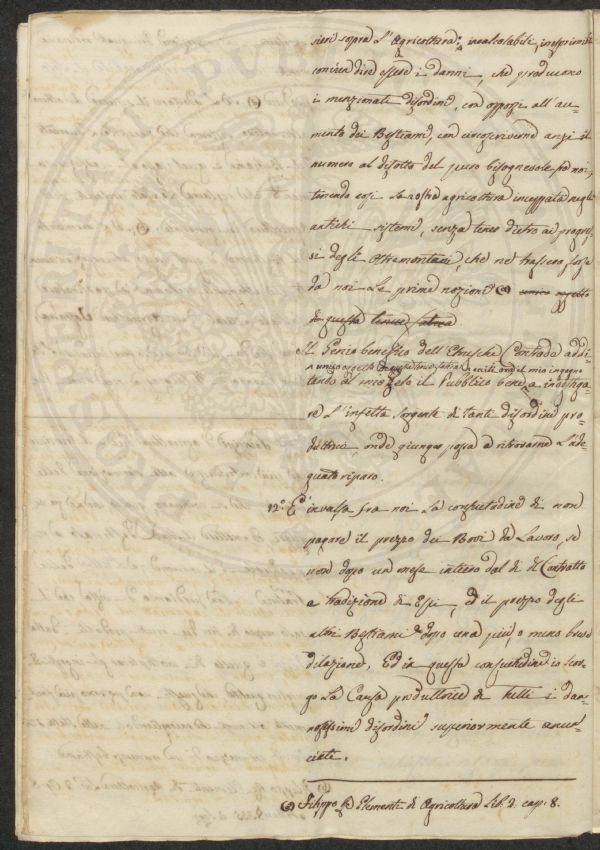 sieri sopra l'Agricoltura: incalcolabile, inesprimibili
convien dire essere i danni, che producono
i menzionati disordini, con opporsi all'au-
mento dei Bestiami, con circoscriverne anzi il
numero al disotto del puro bisognevole frà noi,
tenendo così la nostra agricoltura inceppata negli
antichi sistemi, senza tener dietro ai progres-
si degli Oltremontani, che ne trassero forse
da noi le prime nozioni (a) unico oggetto
di questa tenue fatica
Il Genio benefico dell'Etrusche Contrade addi-
unico oggetto di questa tenue fatica, ecciti ora il mio ingegno
tando al mio zelo il Pubblico bene, a indaga-
re l'infetta sorgente di tanti disordini pro-
duttrice, onde giunger possa a ritrovarne l'ade-
quato riparo.
12.° È invalsa fra noi la consuetudine di non
pagare il prezzo dei Bovi da Lavoro, se
non dopo un mese intero dal dì del Contratto
e tradizione di Essi, ed il prezzo degli
altri Bestiami dopo una più, o meno breve
dilazione, Ed in questa consuetudine io scor-
go la Causa produttrice di tutti i dan-
nosissimi disordini superiormente enun-
ciati.
(a) Filippo Rè Elementi di Agricoltura Lib. 2. cap. 8.